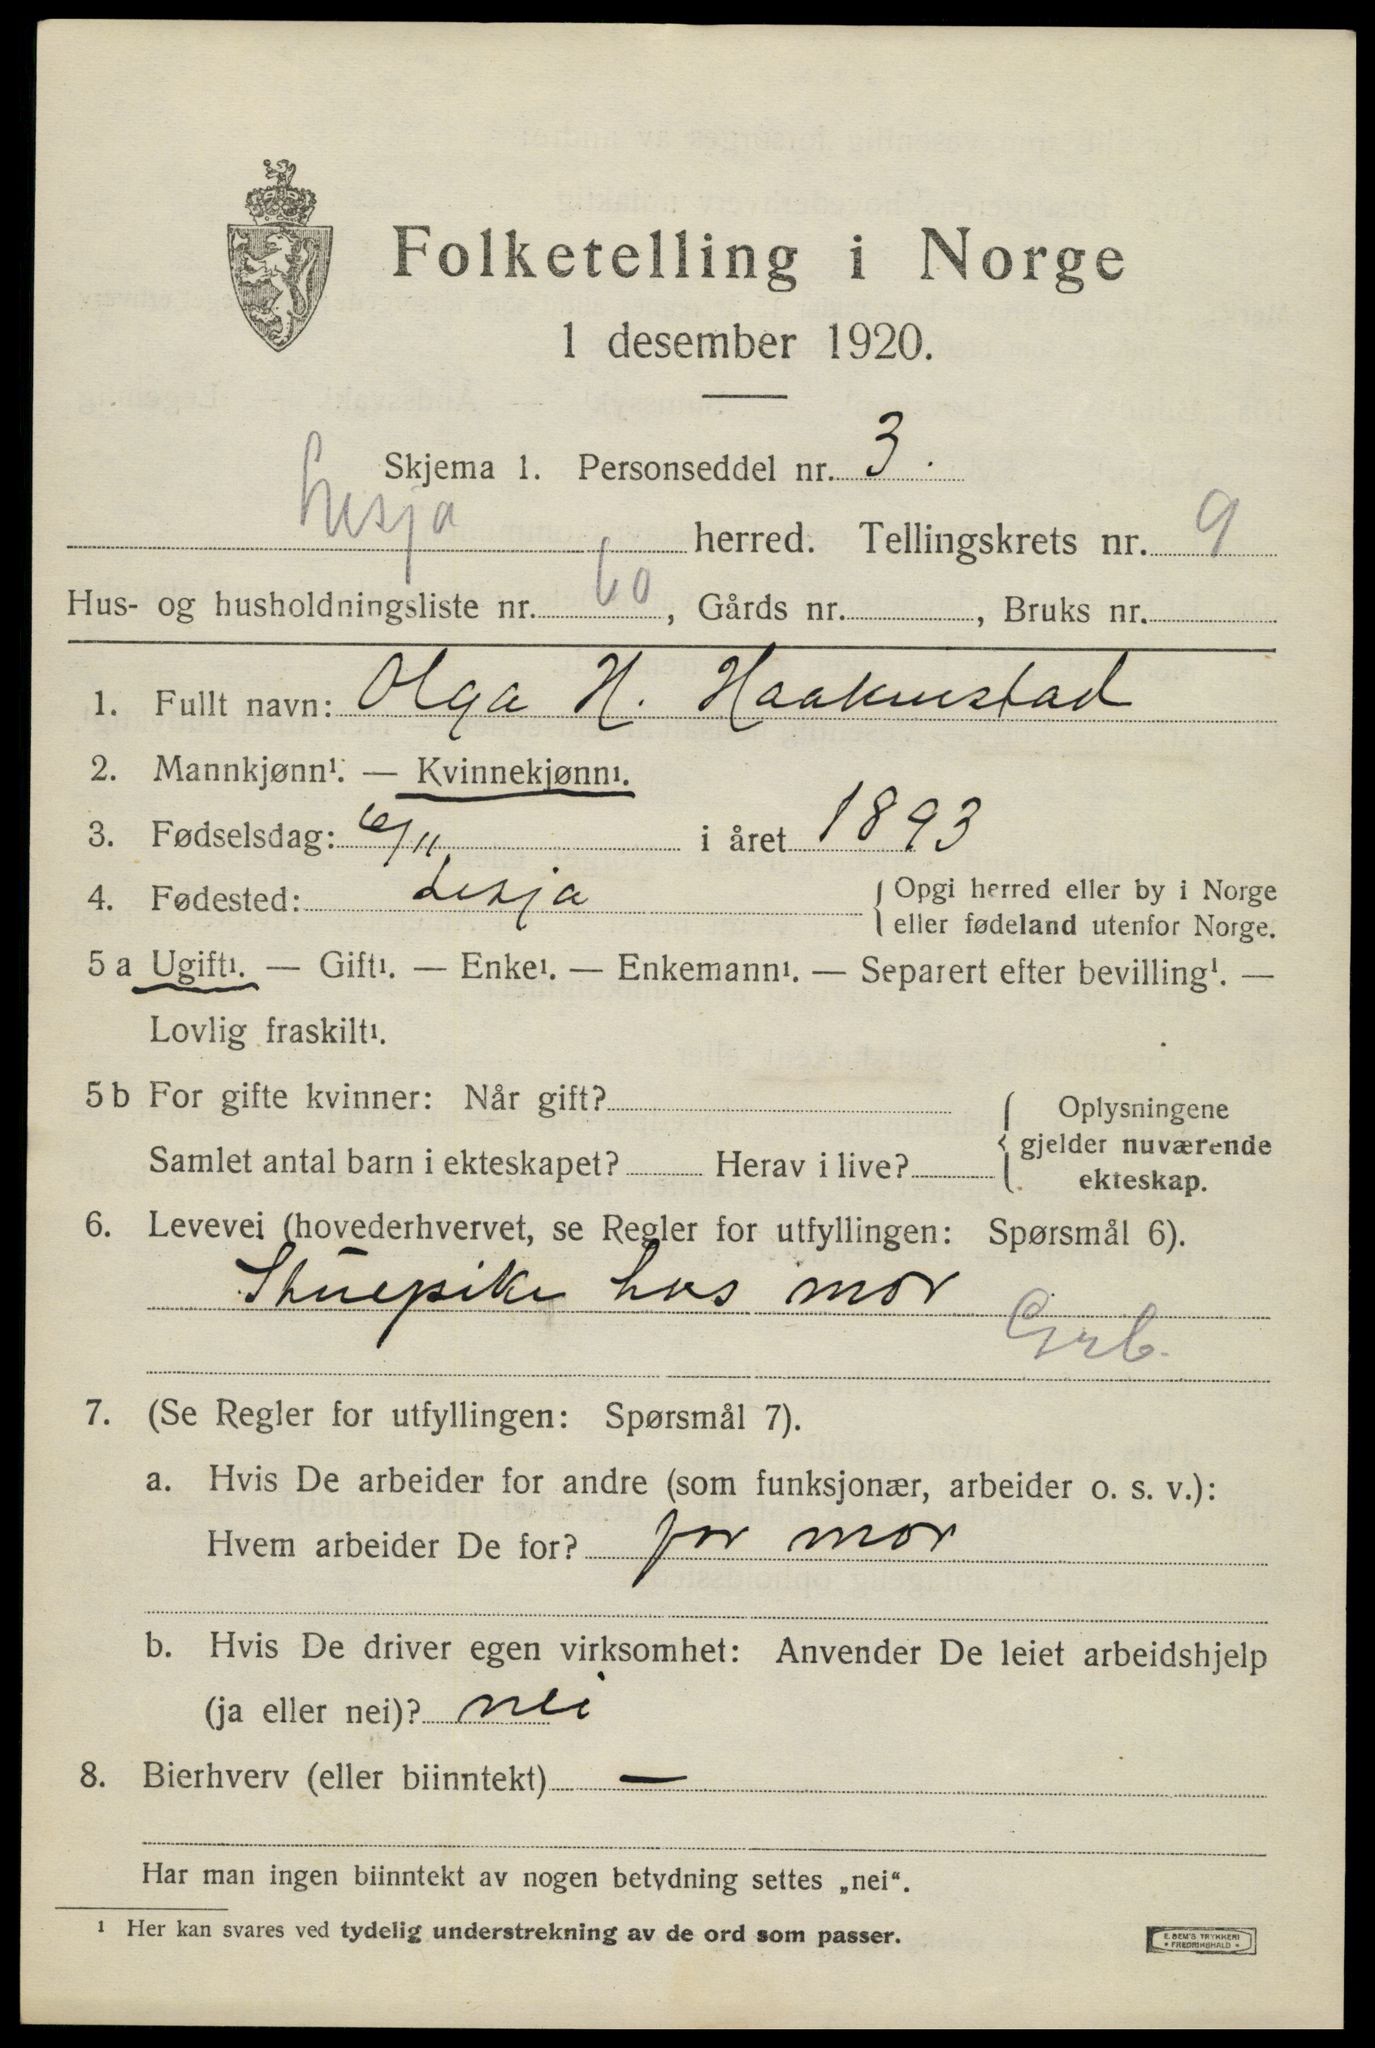 Folketelling i Norge
1 desember 1920.
Skjema 1. Personseddel nr. 3.
Lesja herred. Tellingskrets nr. 9
Hus- og husholdningsliste nr. 60, Gårds nr. , Bruks nr.
1. Fullt navn: Olga H. Haakenstad
2. Mannkjønn¹. — Kvinnekjønn¹.
3. Fødselsdag: 6/11 i året 1893
4. Fødested: Lesja { Opgi herred eller by i Norge
eller fødeland utenfor Norge.
5 a Ugift¹. — Gift¹. — Enke¹. — Enkemann¹. — Separert efter bevilling¹. —
Lovlig fraskilt¹.
5 b For gifte kvinner: Når gift?
Samlet antal barn i ekteskapet? Herav i live?
{ Oplysningene
gjelder nuværende
ekteskap.
6. Levevei (hovederhvervet, se Regler for utfyllingen: Spørsmål 6).
Stuepike hos mor
7. (Se Regler for utfyllingen: Spørsmål 7).
a. Hvis De arbeider for andre (som funksjonær, arbeider o. s. v.):
Hvem arbeider De for? for mor
b. Hvis De driver egen virksomhet: Anvender De leiet arbeidshjelp
(ja eller nei)? nei
8. Bierhverv (eller biinntekt) —
Har man ingen biinntekt av nogen betydning settes „nei“.
¹ Her kan svares ved tydelig understrekning av de ord som passer.
E. SEM'S TRYKKERI
• FREDRIKSHALD •